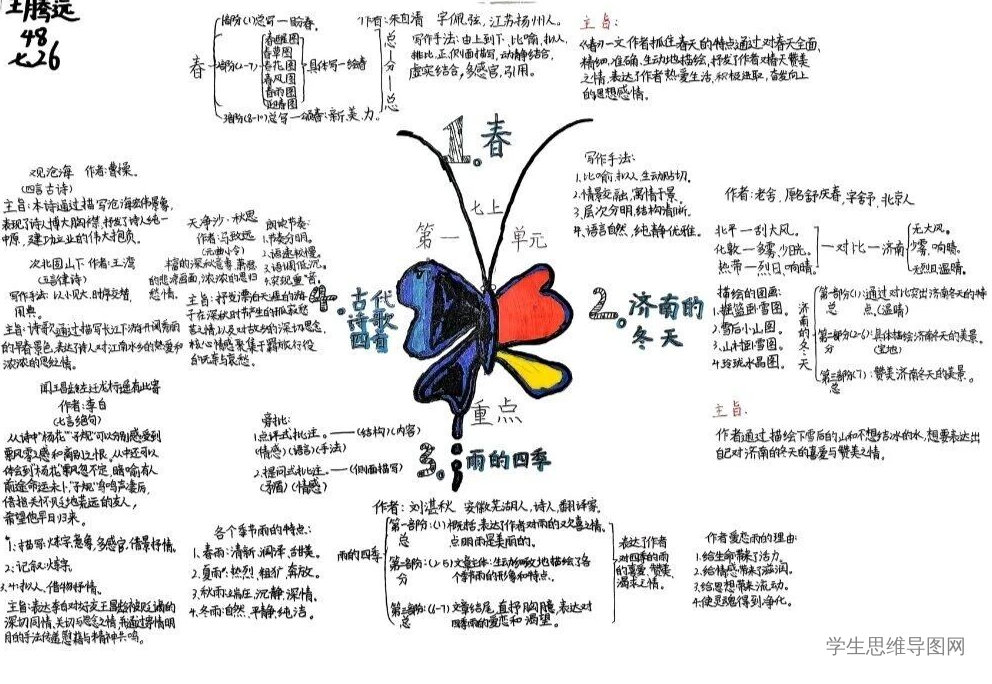 48
七.26
春
部分(1)总写一盼春。
春草图
春花图
春风图
春雨图
迎春图
具体写一绘春
总写一颂春:新、美、力。
总
分
总
作者:朱自清 字佩弦,江苏扬州人。
写作手法:由上到下、比喻、拟人、
排比、正、侧面描写,动静结合,
虚实结合,多感官,引用。
主旨:
《春》一文作者抓住春天的特点通过对春天全面、
精细、准确、生动地描绘,抒发了作者对春天赞美
之情,表达了作者热爱生活,积极进取,奋发向上
的思想感情。
1.春
七上
第一单元
重点
写作手法:
1.比喻,拟人,生动贴切。
2.情景交融,寓情于景。
3.层次分明,结构清晰。
4.语言自然,纯静优雅。
2.济南的
冬天
作者:老舍,原名舒庆春,字舍予,北京人
北平一刮大风。
伦敦一多雾,少日光。
热带一烈日,响晴。
一对比一济南
无大风。
少雾,响晴。
无烈日温晴。
描绘的图画:
1.摇篮卧雪图。
2.雪后小山图。
3.山村卧雪图。
4.玲珑水晶图。
济南的冬天
第一部分(1):通过对比突出济南冬天的特
总 点。(温晴)
第二部分(2-6):具体描绘济南冬天的美景。
分 (宝地)
第三部分(7):赞美济南冬天的美景。
总
主旨:
作者通过描绘下雪后的山和不想结冰的水,想要表达出
自己对济南的冬天的喜爱与赞美之情。
3.雨的四季
作者:刘湛秋 安徽芜湖人,诗人,翻译家。
雨的四季
第一部分:(1)概括,表达了作者对雨的欢喜之情,
总 点明雨是美丽的。
第二部分:(2-5)文章主体:生动细致地描绘了各
分 个季节雨的形象和特点。
第三部分:(6-7)文章结尾,直抒胸臆,表达对
总 四季雨的爱恋和渴望。
表达了作者
对四季的雨
的喜爱、赞美、
渴求之情。
作者爱恋雨的理由:
1.给生命带来了活力。
2.给情感带来了滋润。
3.给思想带来了流动。
4.使灵魂得到净化。
各个季节雨的特点:
1.春雨:清新、润泽、甜美。
2.夏雨:热烈、粗犷、奔放。
3.秋雨:端庄、沉静、深情。
4.冬雨:自然、平静、纯洁。
旁批:
1.点评式批注。——(结构)(内容)
(情感)(语言)(手法)
2.提问式批注。——(侧面描写)
(矛盾)(情感)
4.古代
诗歌
四首
观沧海 作者:曹操。
(四言古诗)
主旨:本诗通过描写沧海宏伟景象,
表现了诗人博大胸襟,抒发了诗人统一
中原,建功立业的伟大抱负。
次北固山下 作者:王湾
(五言律诗)
写作手法:以小见大、时序交替、
用典。
主旨:诗歌通过描写长江下游开阔秀丽
的早春景色,表达诗人对江南水乡的热爱和
浓浓的思乡情。
天净沙·秋思
作者:马致远
(元曲小令)
愁情。
朗读节奏:
1.节奏分明。
2.语速较慢。
3.语调低沉。
主旨:抒发漂泊天涯的游
子在深秋时节产生的孤寂愁
苦之情,以及对故乡的深切思念,
核心情感聚集于羁旅行役
作者:李白
(七言绝句)
从诗中“杨花”“子规”可以分别感受到
飘风零之感和离别之恨。从中还可以
体会到“杨花”飘忽不定,暗喻友人
前途命运未卜,“子规”鸟鸣声凄厉,
借指关怀贬之地荒远的友人,
希望他早日归来。
主旨:表达李白对好友王昌龄被贬之遇的
深切同情、关切与思念之情,并通过寄情明
月的手法传递慰藉与精神共鸣。
学生思维导图网